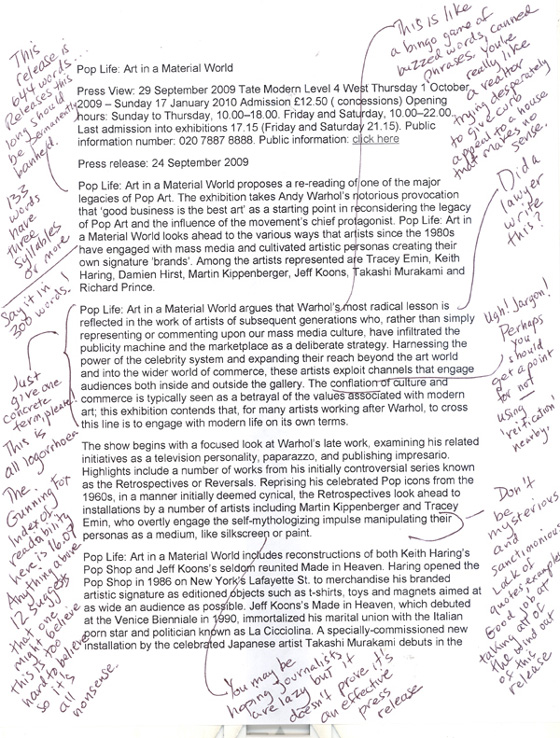 Pop Life: Art in a Material World
Press View: 29 September 2009 Tate Modern Level 4 West Thursday 1 October
2009 – Sunday 17 January 2010 Admission £12.50 ( concessions) Opening
hours: Sunday to Thursday, 10.00–18.00. Friday and Saturday, 10.00–22.00.
Last admission into exhibitions 17.15 (Friday and Saturday 21.15). Public
information number: 020 7887 8888. Public information: click here
Press release: 24 September 2009
Pop Life: Art in a Material World proposes a re-reading of one of the major
legacies of Pop Art. The exhibition takes Andy Warhol's notorious provocation
that 'good business is the best art' as a starting point in reconsidering the legacy
of Pop Art and the influence of the movement's chief protagonist. Pop Life: Art in
a Material World looks ahead to the various ways that artists since the 1980s
have engaged with mass media and cultivated artistic personas creating their
own signature 'brands'. Among the artists represented are Tracey Emin, Keith
Haring, Damien Hirst, Martin Kippenberger, Jeff Koons, Takashi Murakami and
Richard Prince.
Pop Life: Art in a Material World argues that Warhol's most radical lesson is
reflected in the work of artists of subsequent generations who, rather than simply
representing or commenting upon our mass media culture, have infiltrated the
publicity machine and the marketplace as a deliberate strategy. Harnessing the
power of the celebrity system and expanding their reach beyond the art world
and into the wider world of commerce, these artists exploit channels that engage
audiences both inside and outside the gallery. The conflation of culture and
commerce is typically seen as a betrayal of the values associated with modern
art; this exhibition contends that, for many artists working after Warhol, to cross
this line is to engage with modern life on its own terms.
The show begins with a focused look at Warhol's late work, examining his related
initiatives as a television personality, paparazzo, and publishing impresario.
Highlights include a number of works from his initially controversial series known
as the Retrospectives or Reversals. Reprising his celebrated Pop icons from the
1960s, in a manner initially deemed cynical, the Retrospectives look ahead to
installations by a number of artists including Martin Kippenberger and Tracey
Emin, who overtly engage the self-mythologizing impulse manipulating their
personas as a medium, like silkscreen or paint.
Pop Life: Art in a Material World includes reconstructions of both Keith Haring's
Pop Shop and Jeff Koons's seldom reunited Made in Heaven. Haring opened the
Pop Shop in 1986 on New York's Lafayette St. to merchandise his branded
artistic signature as editioned objects such as t-shirts, toys and magnets aimed at
as wide an audience as possible. Jeff Koons's Made in Heaven, which debuted
at the Venice Bienniale in 1990, immortalized his marital union with the Italian
porn star and politician known as La Cicciolina. A specially-commissioned new
installation by the celebrated Japanese artist Takashi Murakami debuts in the
This
release is...
644 words...
Releases this
long should
be permanently
banned.
133
words
have
three
syllables
or more
Say it in
300 words!
Just
give one
concrete
term, please!
This is
all logorrhoea
The
Gunning Fog
Index of
readability
here is 16.07
Anything above
12 suggests
that one
might believe
this is too
hard to believe
so it's
all
nonsense.
This is like
a bingo game of
buzzed words, canned
phrases. You're
really like
a realtor
trying desperately
to give curb
appeal to a house
that makes no
sense.
Did a
lawyer
write
this?
Ugh! Jargon!
Perhaps
you
should
get a point
for not
using
"reification"
nearby.
Don't
be
mysterious
and
sanctimonious
Lack of
quotes, examples
Good job at
taking all of
the wind out
of this
release
You may be
hoping journalists
are lazy but it
doesn't prove it's
an effective
press
release